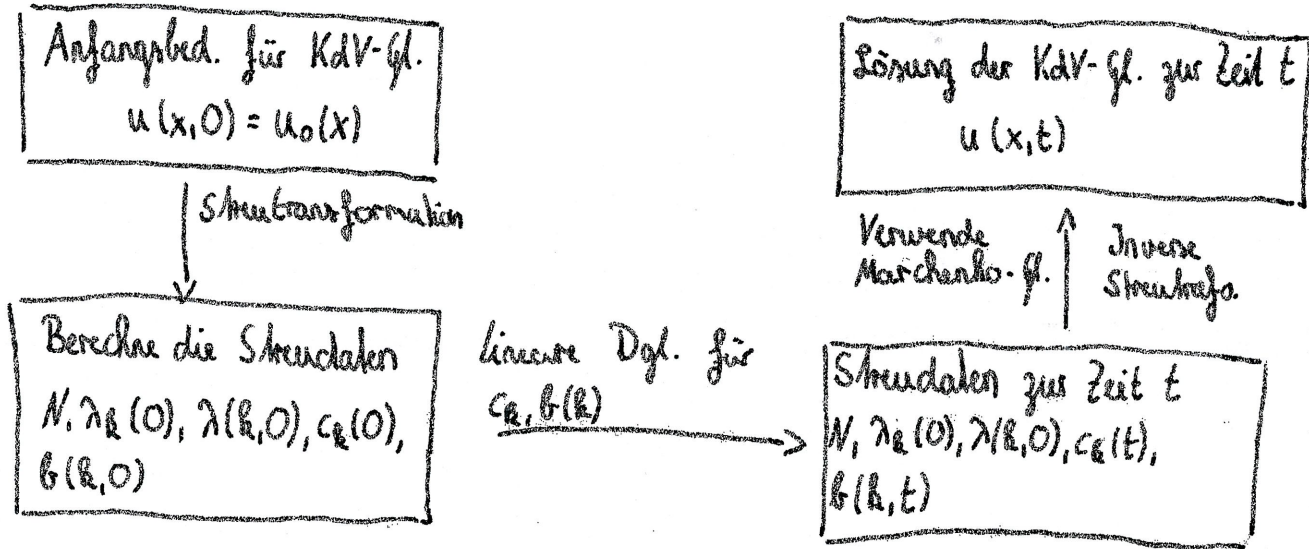 Anfangsbed. für KdV-Gl.
u(x,0) = u₀(x)
Streutransformation
Berechne die Streudaten
N, λₖ(0), λ(k,0), cₖ(0),
b(k,0)
Lineare Dgl. für
cₖ, b(k)
Streudaten zur Zeit t
N, λₖ(0), λ(k,0), cₖ(t),
b(k,t)
Verwende
Marchenko-Gl.
Inverse
Streutrafo.
Lösung der KdV-Gl. zur Zeit t
u(x,t)